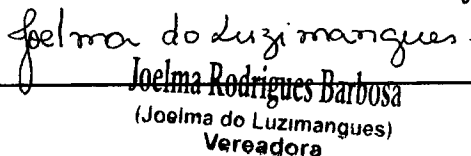 Joelma do Luzimangues.
Joelma Rodrigues Barbosa
(Joelma do Luzimangues)
Vereadora